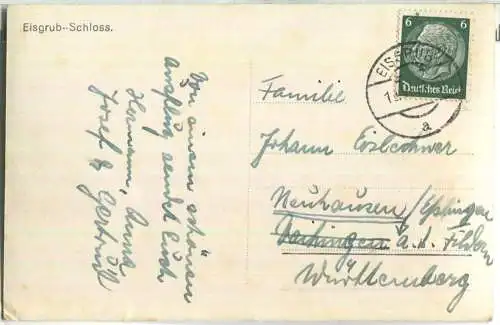 Eisgrub--Schloss.
6 6
Deutsches Reich
EISGRUB
a
Von einem schönen
Ausflug sendet Euch
Hermann, Anna
Josef & Gertrud
Familie
Johann
Neuhausen / Eßlingen
Vaihingen a. d. Fildern
Württemberg